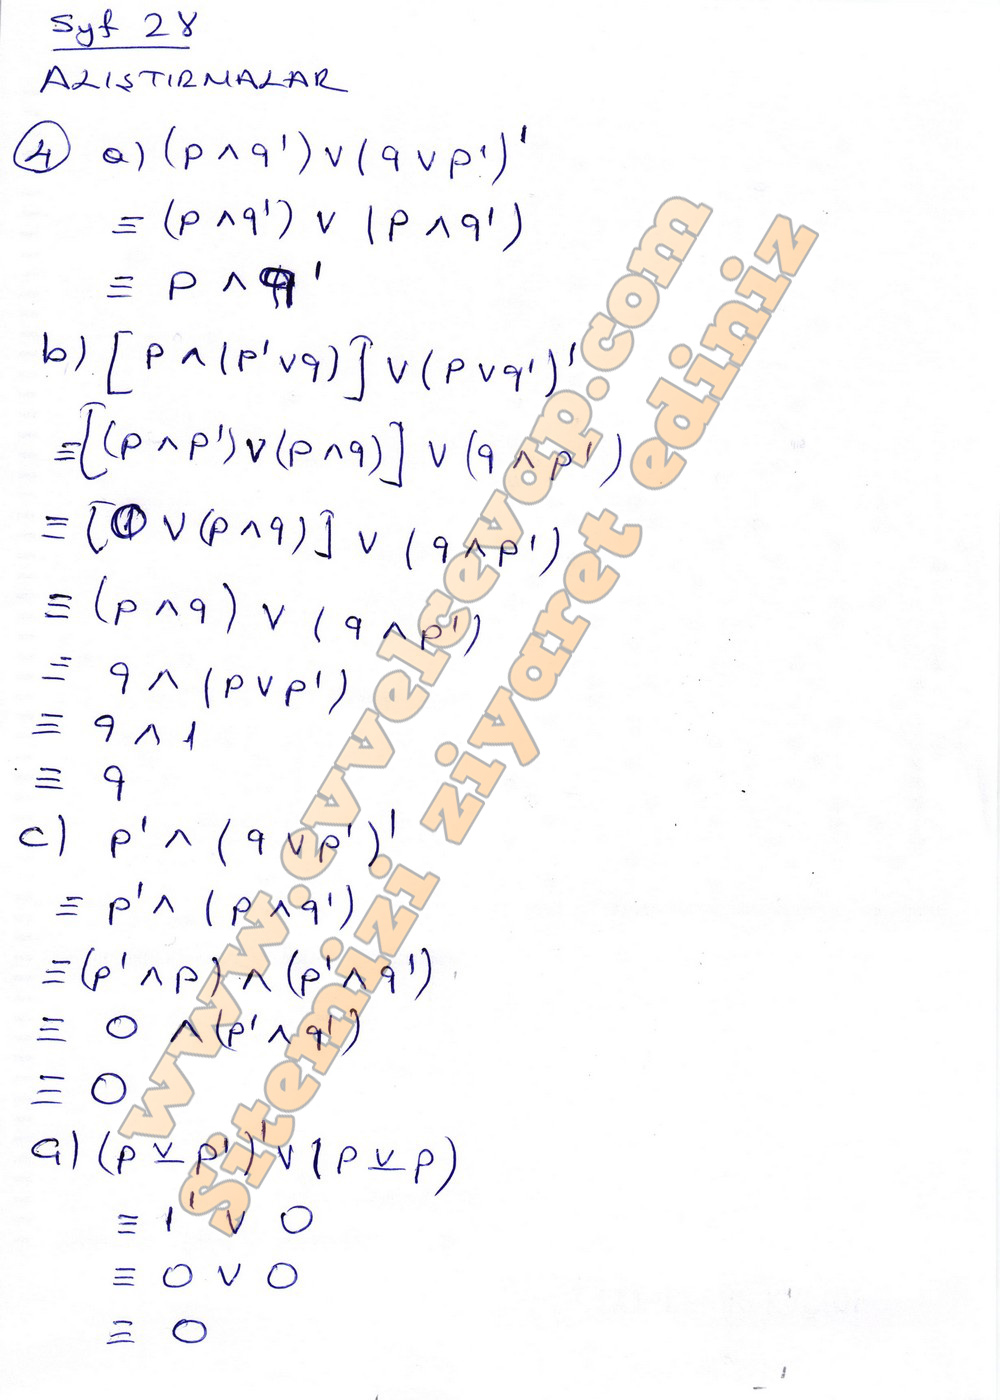 Syf 28
ALIŞTIRMALAR
4 a) (p ∧ q') ∨ (q ∨ p')'
≡ (p ∧ q') ∨ (p ∧ q')
≡ p ∧ q'
b) [p ∧ (p' ∨ q)] ∨ (p ∨ q')'
≡ [(p ∧ p') ∨ (p ∧ q)] ∨ (q ∧ p')
≡ [0 ∨ (p ∧ q)] ∨ (q ∧ p')
≡ (p ∧ q) ∨ (q ∧ p')
≡ q ∧ (p ∨ p')
≡ q ∧ 1
≡ q
c) p' ∧ (q ∨ p')'
≡ p' ∧ (p ∧ q')
≡ (p' ∧ p) ∧ (p' ∧ q')
≡ 0 ∧ (p' ∧ q')
≡ 0
a) (p ⊻ p')' ∨ (p ⊻ p)
≡ 1' ∨ 0
≡ 0 ∨ 0
≡ 0
www.evvelcevap.com
Sitemizi ziyaret ediniz